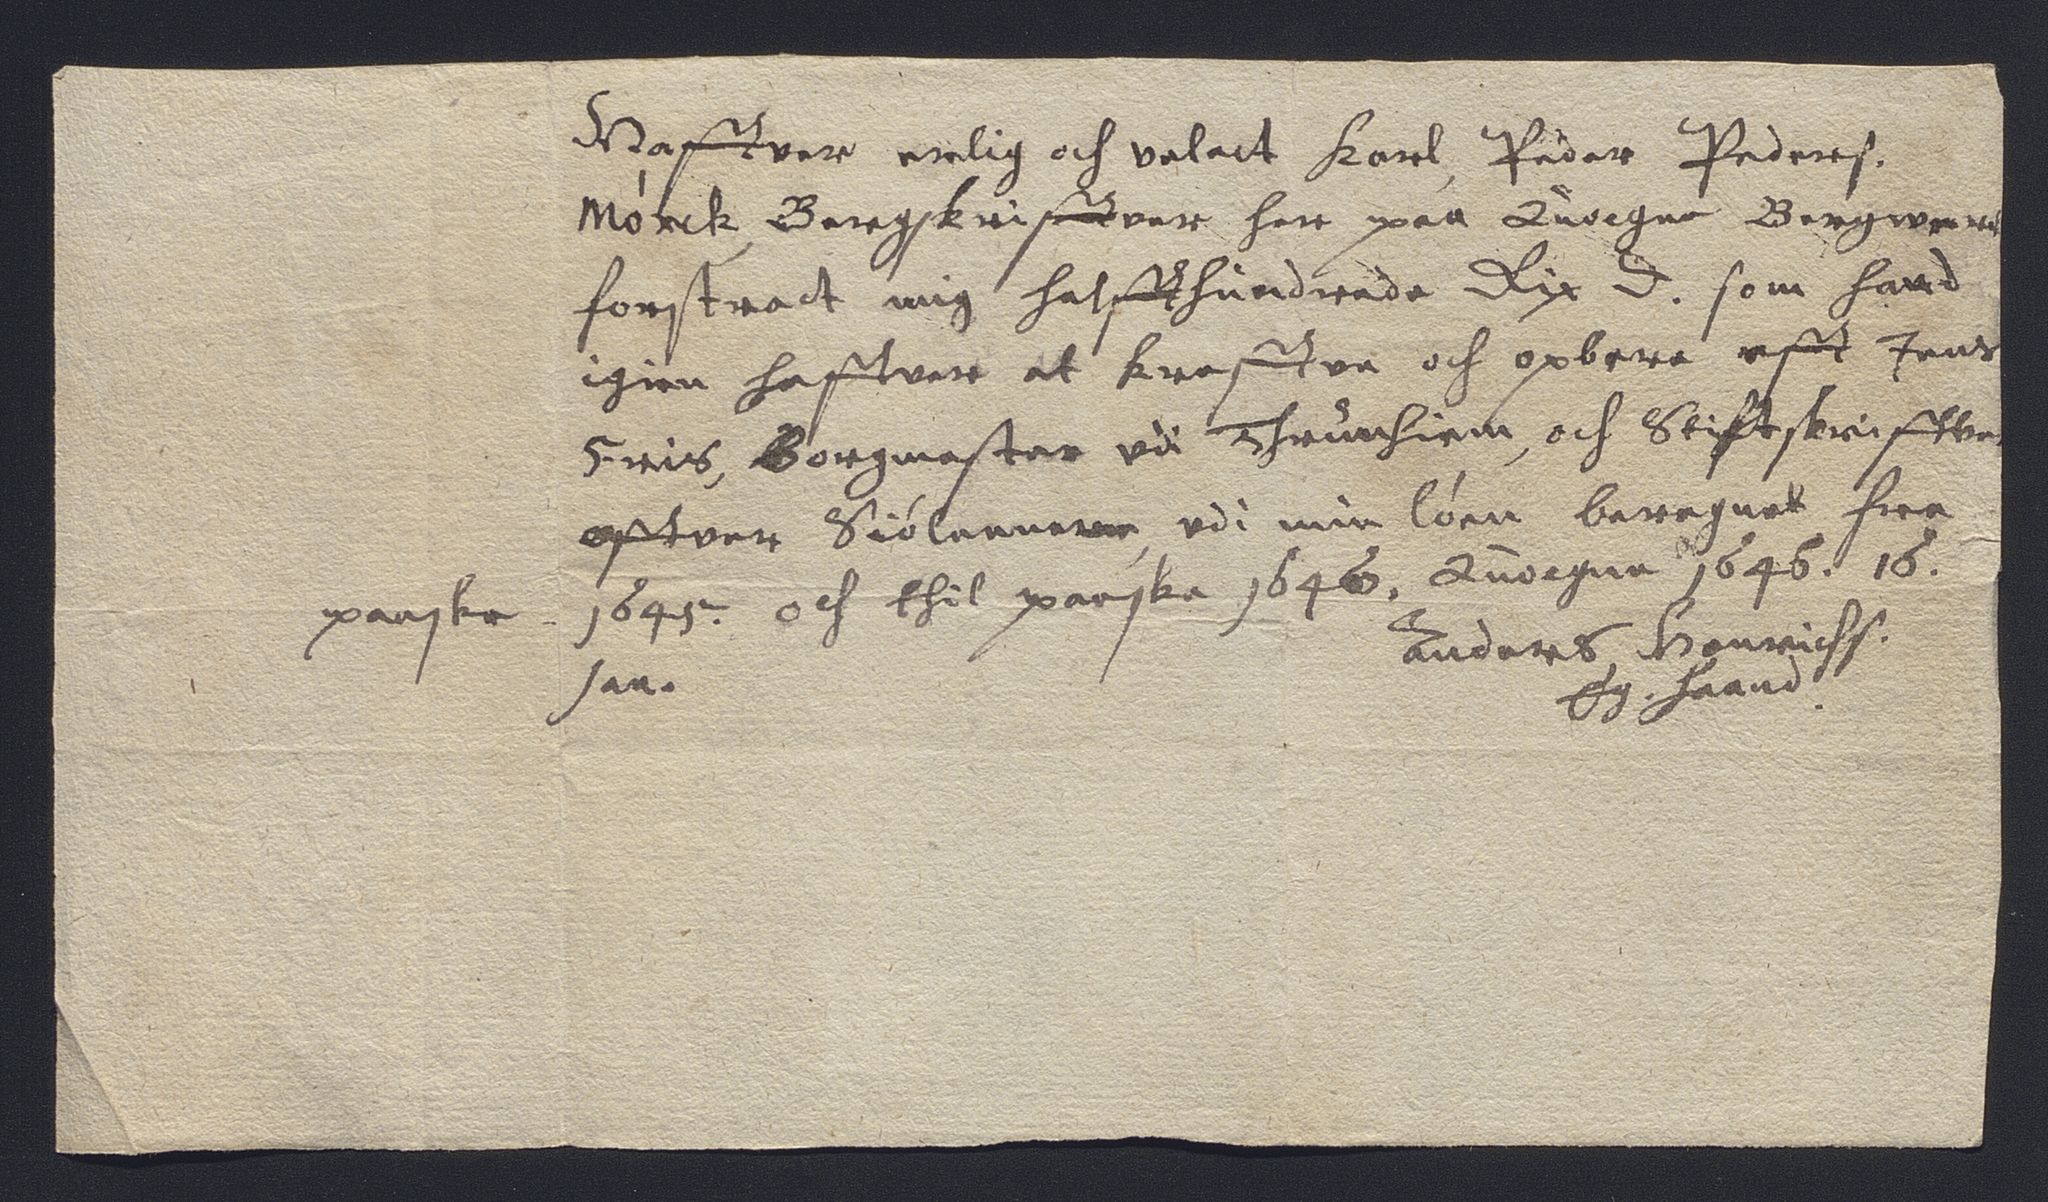 Hafftver erlig och velact Karl, Peder Peders.
Mórck, Bergskrifftver her paa Quoegne Bergwerck
forstract mig halffthundrede Rix D. som hand
igien hafftver at krefftve och opbere efft Jens
Friis, Borgmester udi Thrunhiem, och Stiftskrifftver
offtver Siólennerne, udi min lóen beregnet fra
paaske 1645. och thil paaske 1646. Quoegne 1646. 16.
Jan.
Anders Henrichs.
Eg. Haand.